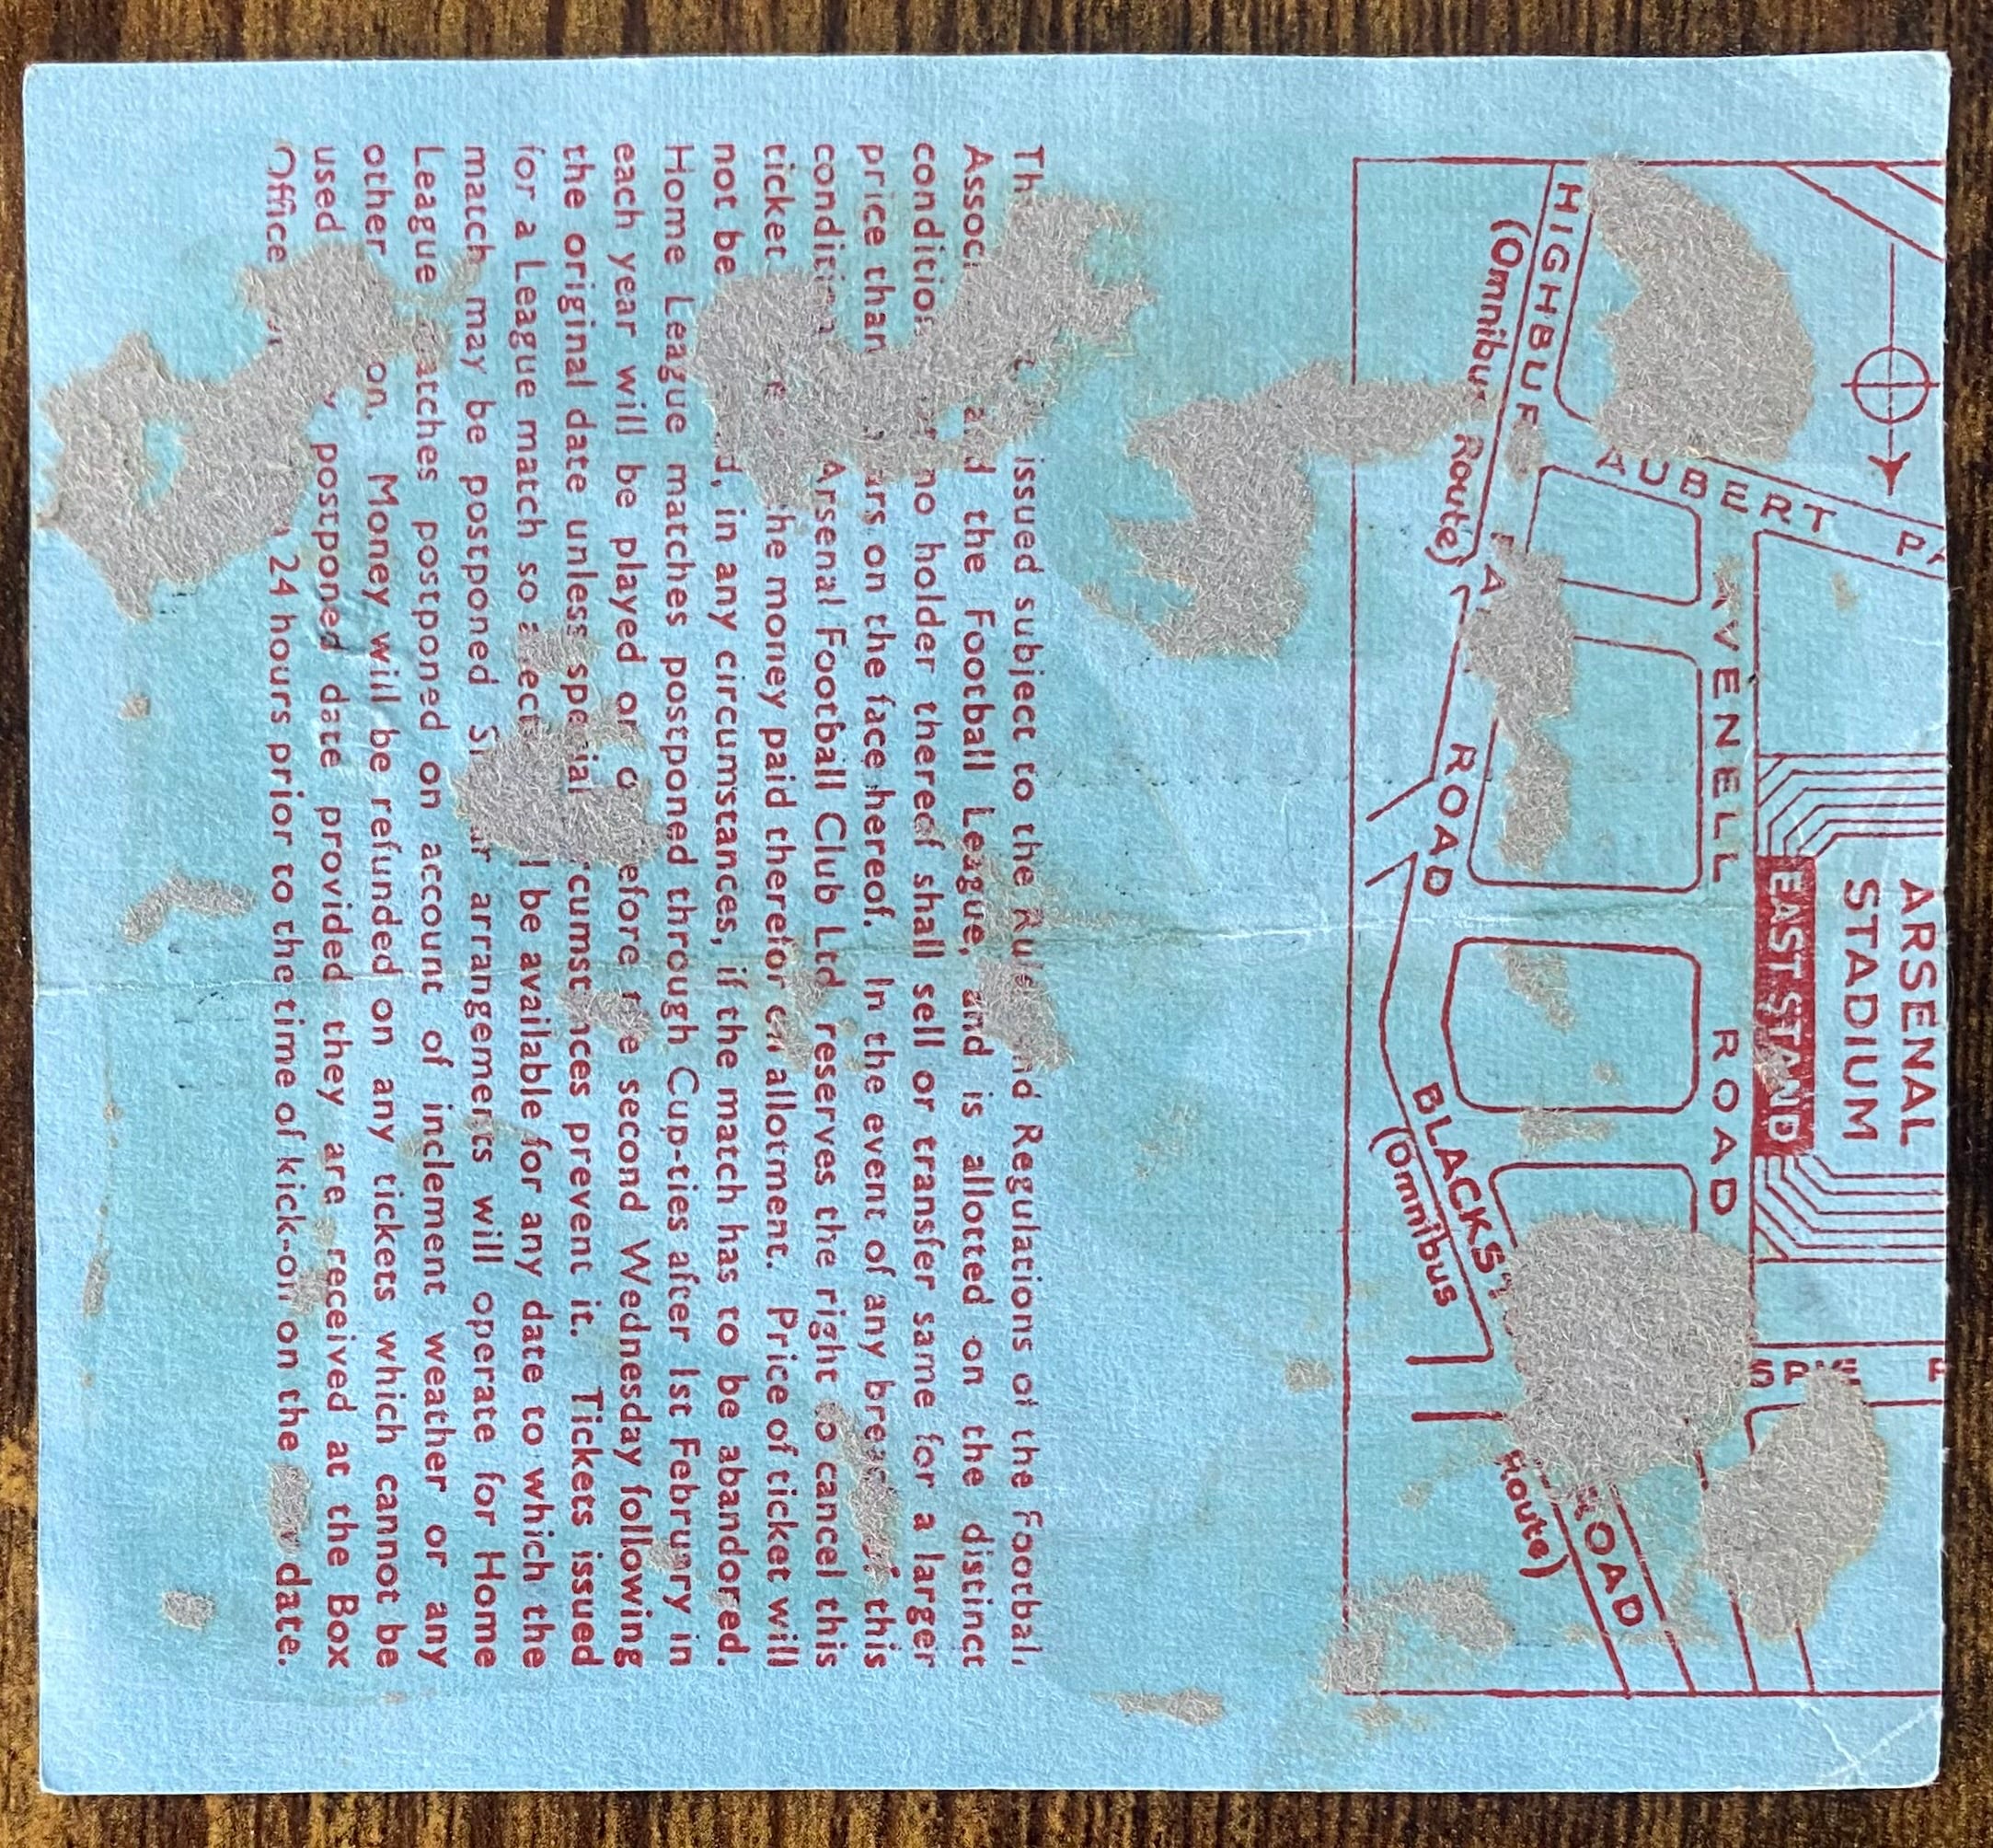 ARSENAL
STADIUM
EAST STAND
AUBERT
AVENELL ROAD
HIGHBURY
ROAD
(Omnibus Route)
BLACKS
ROAD
(Omnibus
Route)
issued subject to the Rules and Regulations of the Football
and the Football League, and is allotted on the distinct
condition no holder thereof shall sell or transfer same for a larger
price than on the face hereof. In the event of any breach of this
condition Arsenal Football Club Ltd. reserves the right to cancel this
ticket the money paid therefor on allotment. Price of ticket will
not be in any circumstances, if the match has to be abandored.
Home League matches postponed through Cup-ties after 1st February in
each year will be played on or before the second Wednesday following
the original date unless special circumstances prevent it. Tickets issued
for a League match so be available for any date to which the
match may be postponed arrangements will operate for Home
League matches postponed on account of inclement weather or any
other Money will be refunded on any tickets which cannot be
used postponed date provided they are received at the Box
Office 24 hours prior to the time of kick-off on the date.